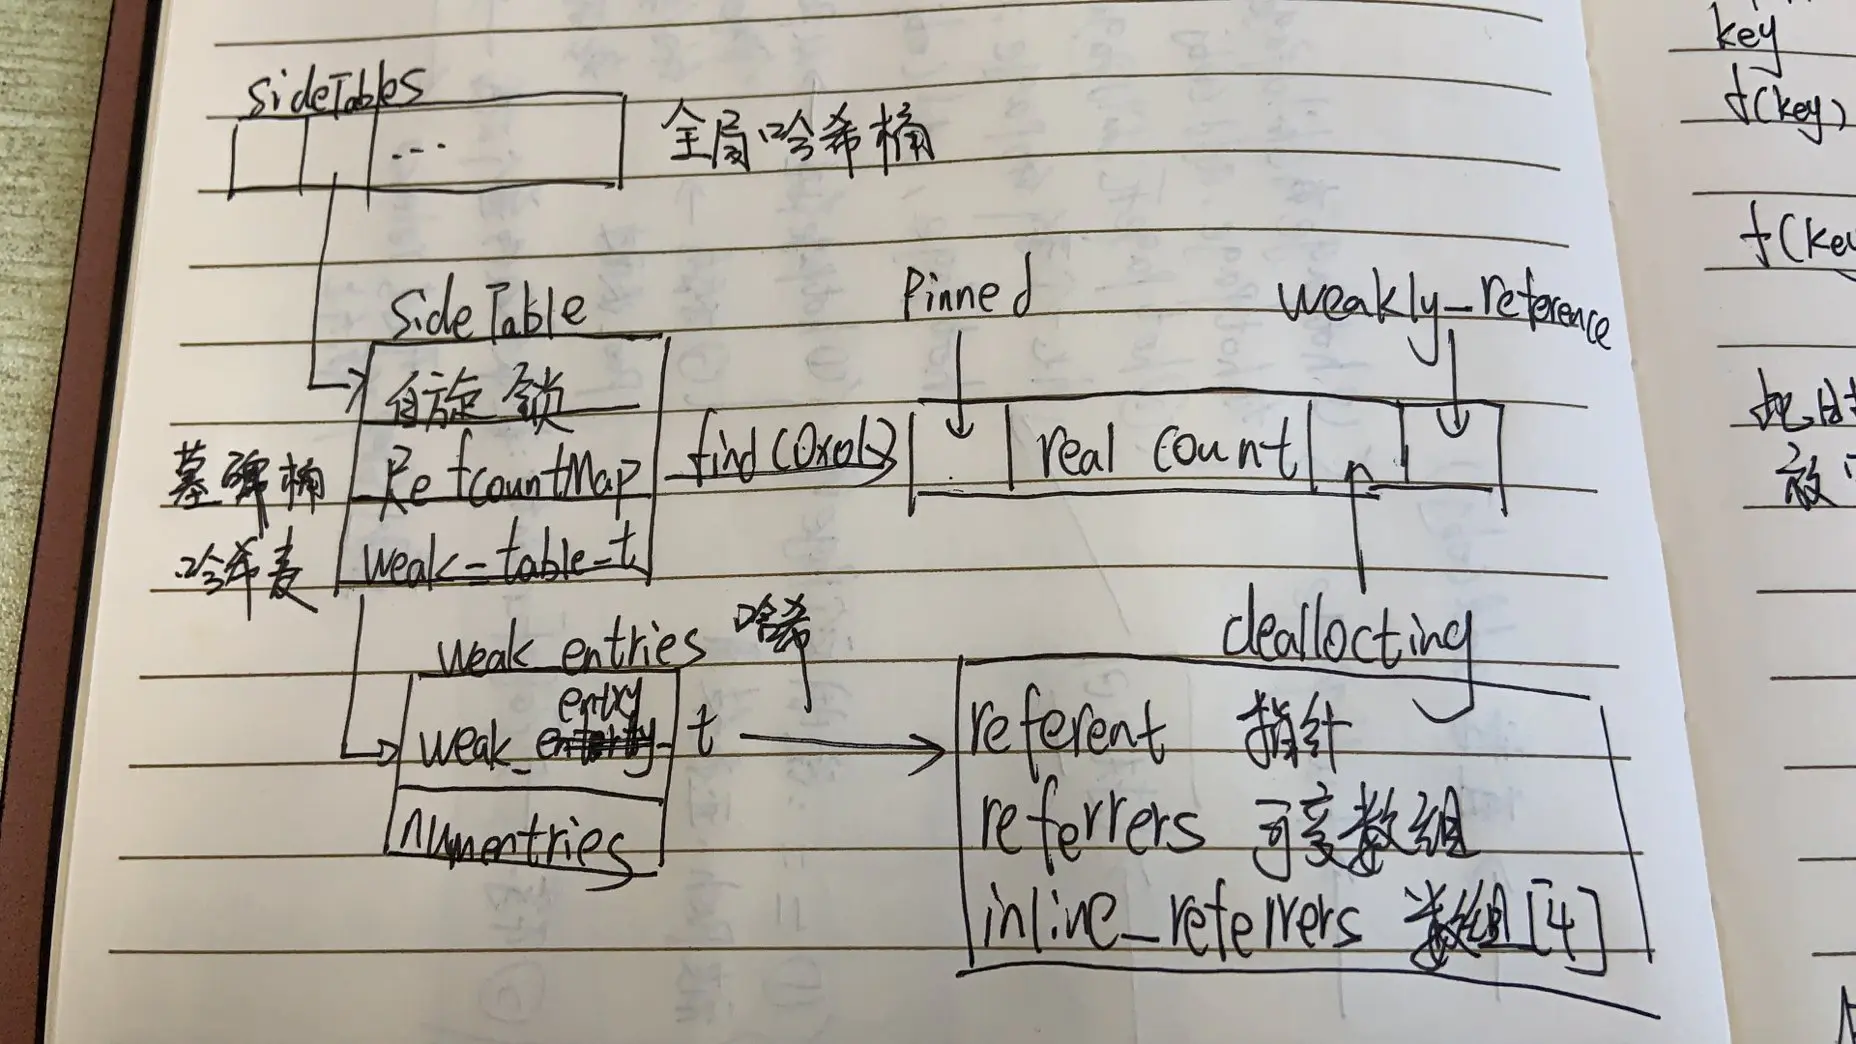 sideTables
...
全局哈希桶
SideTable
自旋锁
RefcountMap
weak_table_t
墓碑桶
哈希表
find(0x01)
Pinned
weakly_reference
real count
deallocting
weak_entries 哈希
entry
weak_
t
numentries
referent 指针
referrers 可变数组
inline_referrers 数组[4]
key
f(key)
f(key